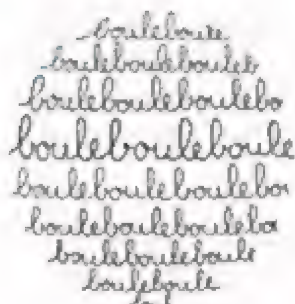 bouleboule
boulebouleboule
boulebouleboulebo
boulebouleboule
boulebouleboulebou
boulebouleboulebo
boulebouleboule
bouleboule